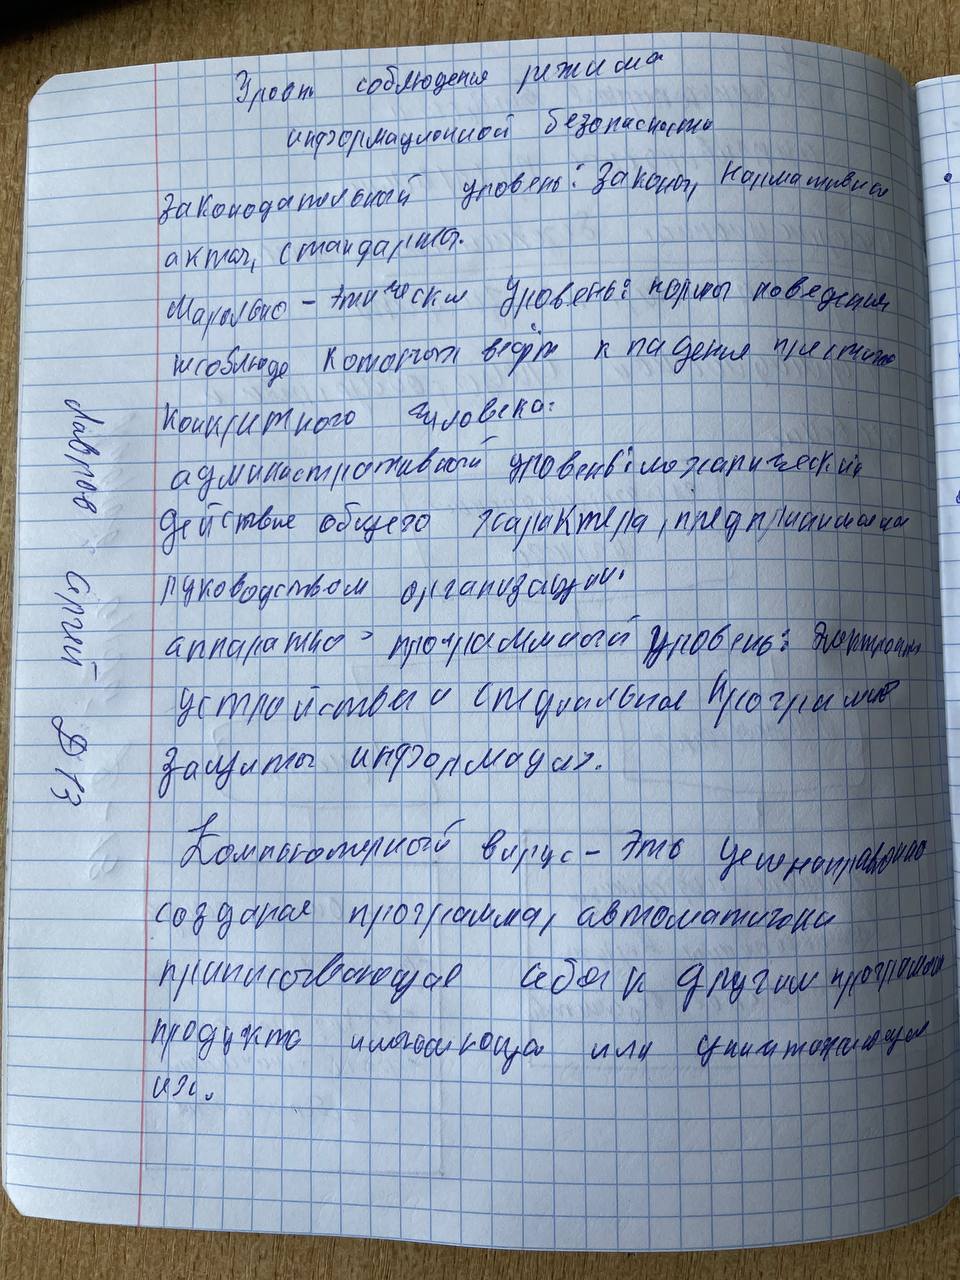 Уровни соблюдения режима
информационной безопасности
Законодательный уровень: законы, нормативные
акты, стандарты.
Морально - этически уровень: нормы поведения
несоблюде которых ведёт к падения престижа
конкритного человека.
административный уровень:
действие общего характера, предпринимаемые
руководством организации.
аппаратно - программный уровень:
устройства и специальные программы
защиты информации.
Компьютерный вирус - это целенаправлено
создараная программа, автоматически
приписывающая себя к другим программ
продукто или уничтожающая
их.
Лавров Сргей Ф 13